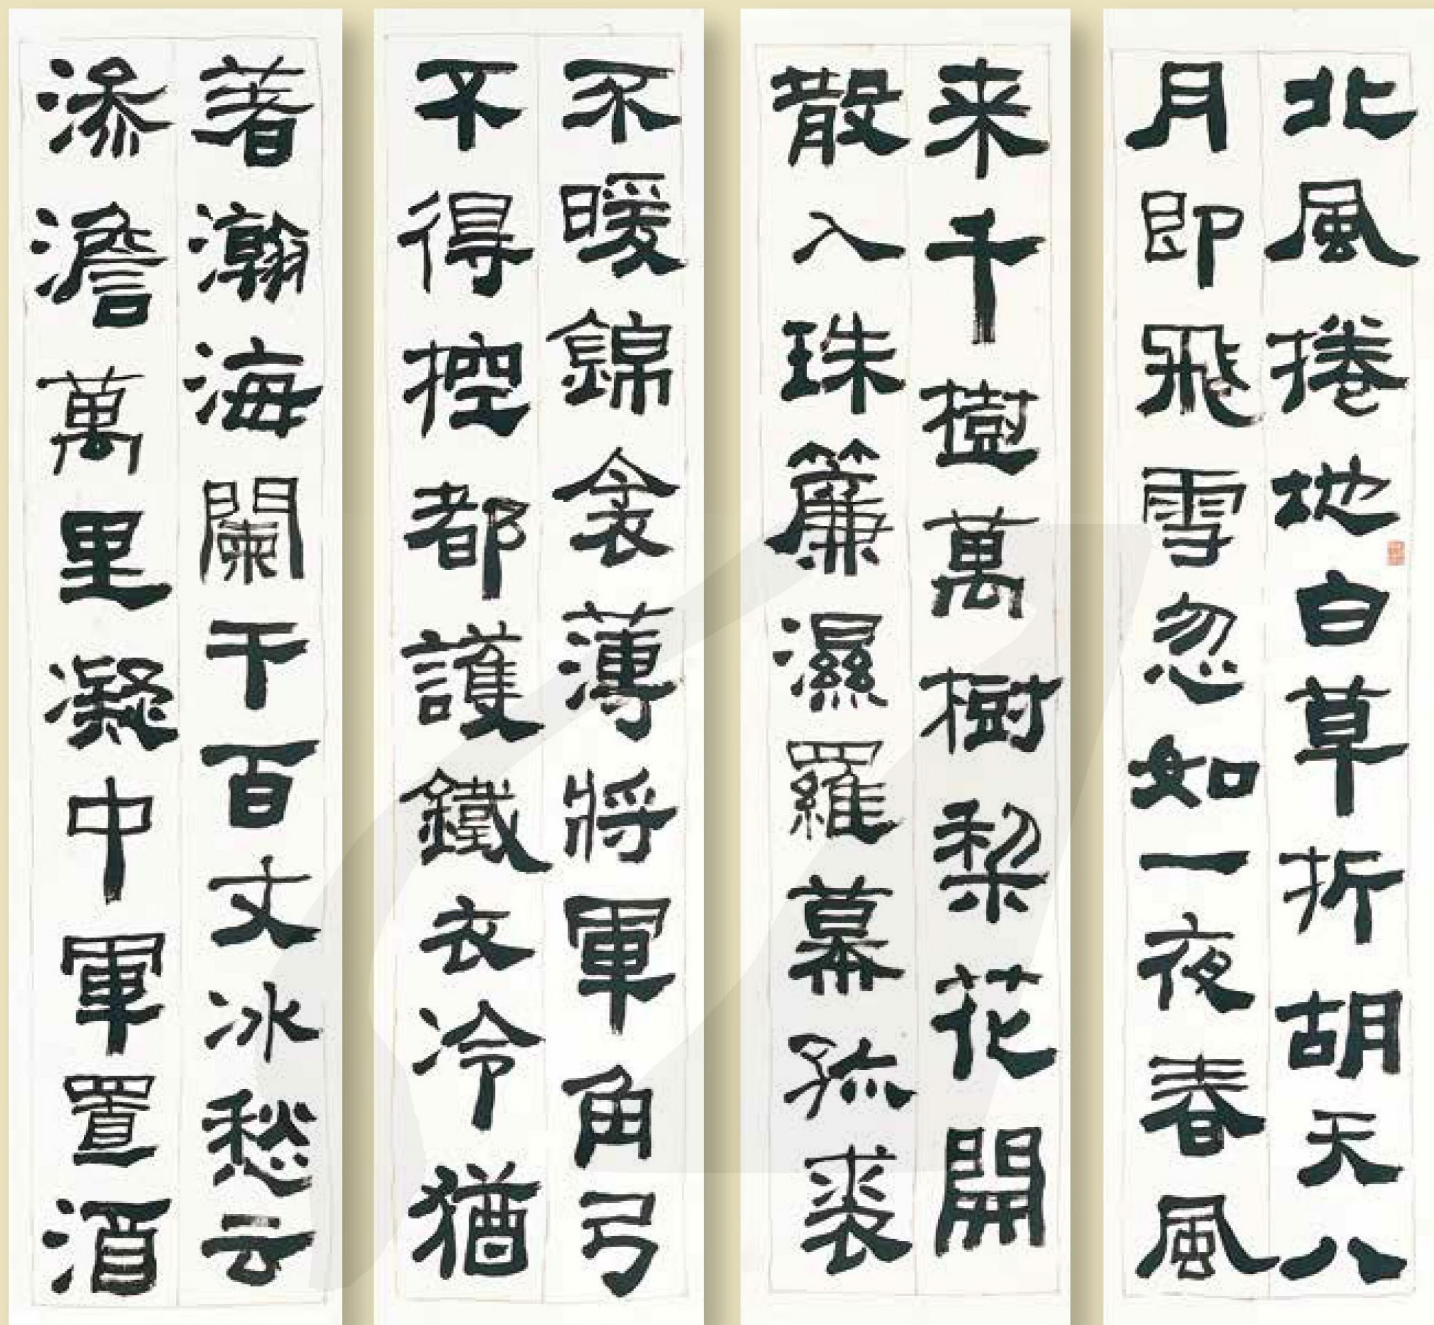 北風捲地白草折胡天八
月即飛雪忽如一夜春風
来千樹萬樹梨花開
散入珠簾濕羅幕孤裘
不暖錦衾薄將軍角弓
不得控都護鐵衣冷猶
著瀚海闌干百丈冰愁云
渗澹萬里凝中軍置酒